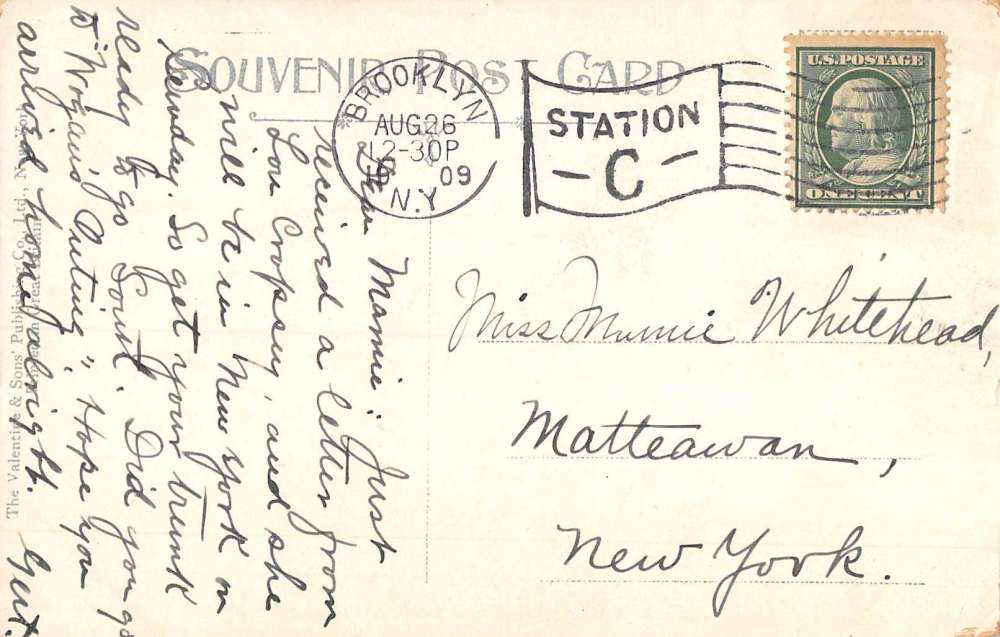 SOUVENIR POST CARD
BROOKLYN
AUG 26
12-30P
09
N.Y.
STATION
C
U.S. POSTAGE
ONE CENT
Miss Mamie Whitehead,
Matteawan,
New York.
Dear Mamie: Just
received a letter from
Lou Cropsey, and she
will be in New York on
Sunday. So get your trunk
ready to go South. Did you go
to "Wogan's Outing". Hope you
arrived home alright.
Gert.
The Valentine & Sons' Publishing Co., Ltd., New York